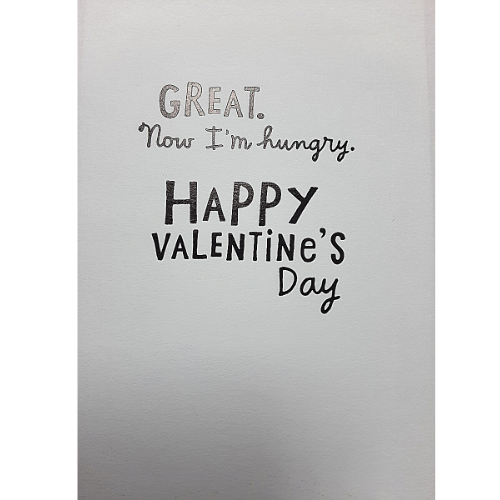 GREAT.
Now I'm hungry.
HAPPY
VALENTiNe'S
Day